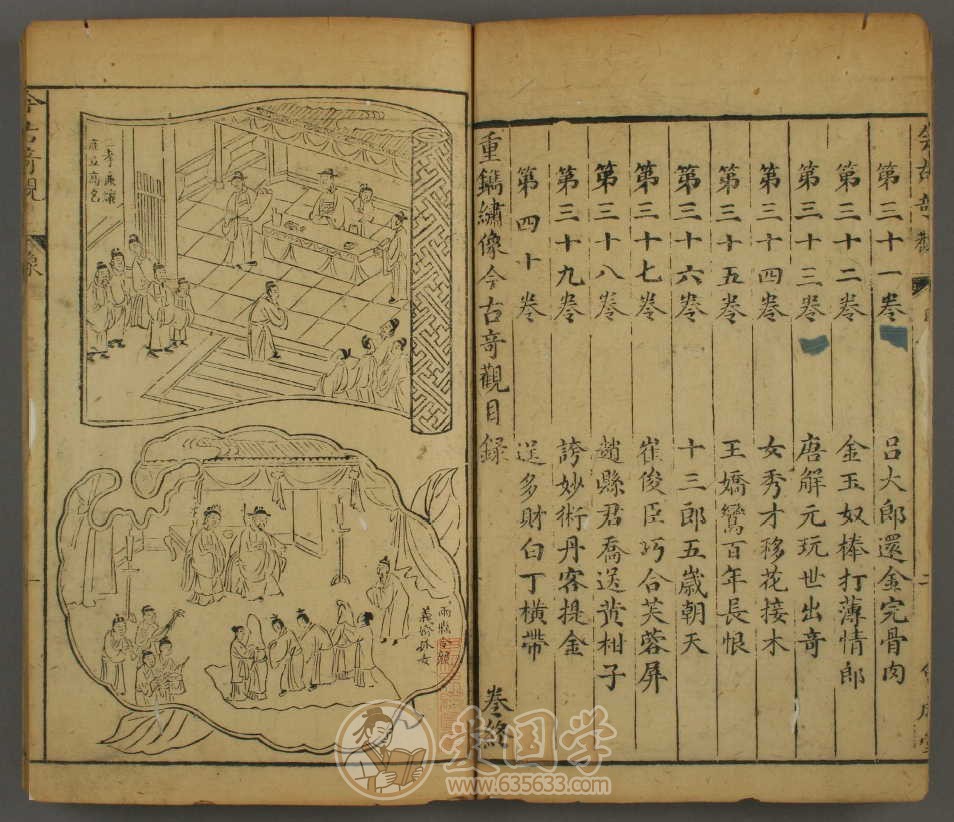 第三十一卷 呂大郎還金完骨肉
第三十二卷 金玉奴棒打薄情郎
第三十三卷 唐解元玩世出奇
第三十四卷 女秀才移花接木
第三十五卷 王嬌鸞百年長恨
第三十六卷 十三郎五歲朝天
第三十七卷 崔俊臣巧合芙蓉屏
第三十八卷 趙縣君喬送黄柑子
第三十九卷 誇妙術丹客提金
第四十卷 逞多財白丁横帶
重鐫繡像今古奇觀目録 卷終
三孝廉讓
產立高名
兩縣令競
義婚孤女
今古奇觀 像
一
愛国学
www.635633.com